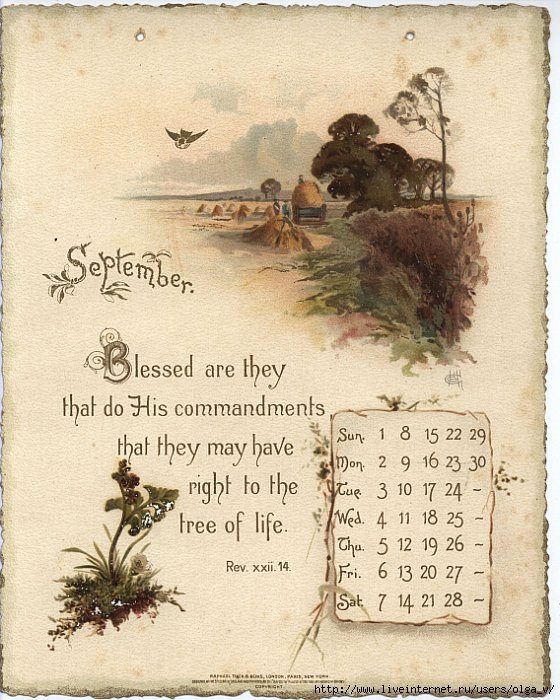 September.
Blessed are they
that do His commandments
that they may have
right to the
tree of life.
Rev. xxii. 14.
Sun. 1 8 15 22 29
Mon. 2 9 16 23 30
Tue. 3 10 17 24 –
Wed. 4 11 18 25 –
Thu. 5 12 19 26 –
Fri. 6 13 20 27 –
Sat. 7 14 21 28 –
RAPHAEL TUCK & SONS, LONDON, PARIS, NEW YORK
COPYRIGHT
http://www.liveinternet.ru/users/olga_